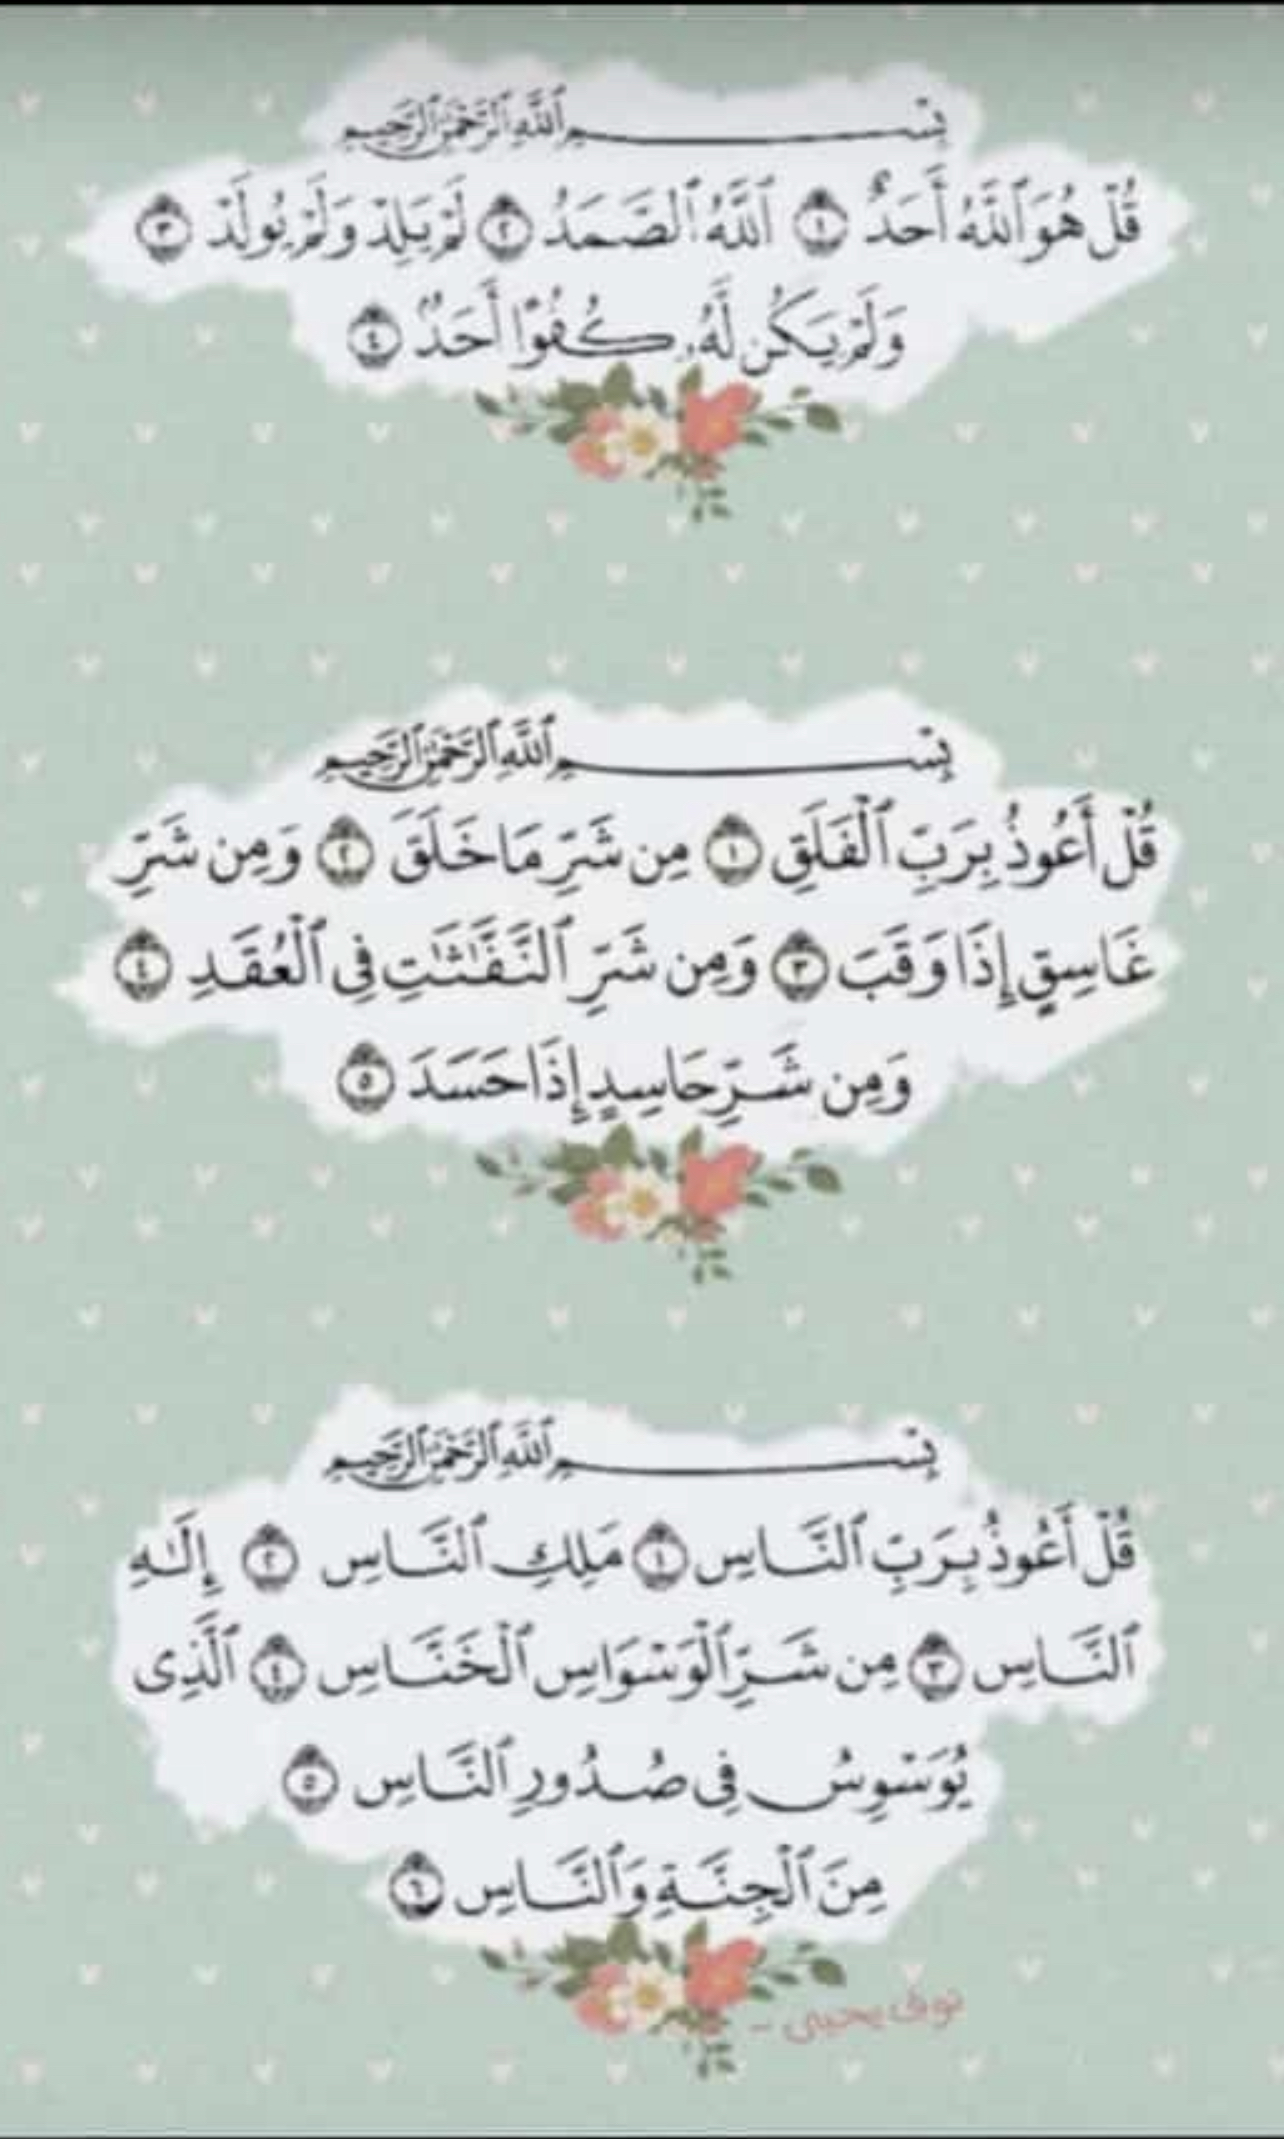 بِسْمِ ٱللَّهِ ٱلرَّحْمَٰنِ ٱلرَّحِيمِ
قُلْ هُوَ ٱللَّهُ أَحَدٌ ١ ٱللَّهُ ٱلصَّمَدُ ٢ لَمْ يَلِدْ وَلَمْ يُولَدْ ٣
وَلَمْ يَكُن لَّهُۥ كُفُوًا أَحَدٌۢ ٤
بِسْمِ ٱللَّهِ ٱلرَّحْمَٰنِ ٱلرَّحِيمِ
قُلْ أَعُوذُ بِرَبِّ ٱلْفَلَقِ ١ مِن شَرِّ مَا خَلَقَ ٢ وَمِن شَرِّ
غَاسِقٍ إِذَا وَقَبَ ٣ وَمِن شَرِّ ٱلنَّفَّٰثَٰتِ فِى ٱلْعُقَدِ ٤
وَمِن شَرِّ حَاسِدٍ إِذَا حَسَدَ ٥
بِسْمِ ٱللَّهِ ٱلرَّحْمَٰنِ ٱلرَّحِيمِ
قُلْ أَعُوذُ بِرَبِّ ٱلنَّاسِ ١ مَلِكِ ٱلنَّاسِ ٢ إِلَٰهِ
ٱلنَّاسِ ٣ مِن شَرِّ ٱلْوَسْوَاسِ ٱلْخَنَّاسِ ٤ ٱلَّذِى
يُوَسْوِسُ فِى صُدُورِ ٱلنَّاسِ ٥
مِنَ ٱلْجِنَّةِ وَٱلنَّاسِ ٦
يحيى -